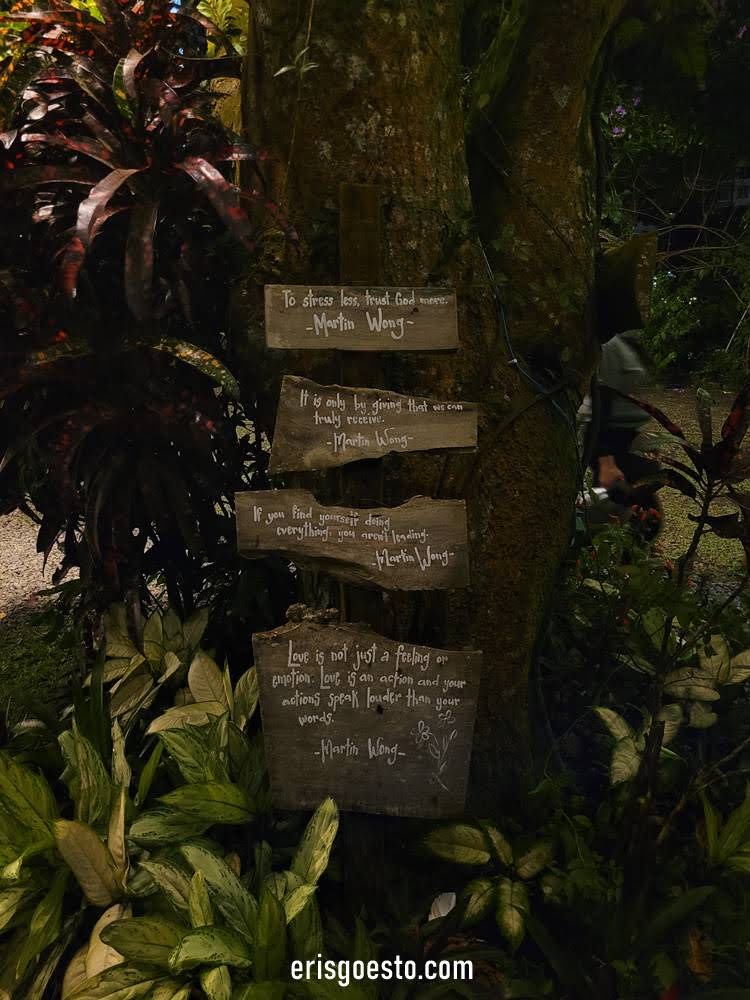 To stress less, trust God more.
-Martin Wong-
It is only by giving that we can
truly receive.
-Martin Wong-
If you find yourself doing
everything, you aren't leading.
-Martin Wong-
Love is not just a feeling or
emotion. Love is an action and your
actions speak louder than your
words.
-Martin Wong-
erisgoesto.com